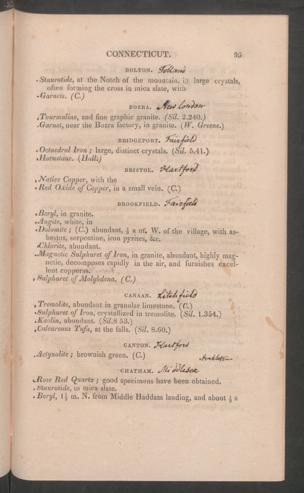 CONNECTICUT. 95
BOLTON. Tolland
Staurotide, at the Notch of the mountain, in large crystals,
often forming the cross in mica slate, with
Garnets. (C.)
BOZRA. New London
Tourmaline, and fine graphic granite. (Sil. 2.240.)
Garnet, near the Bozra factory, in granite. (W. Greene.)
BRIDGEPORT. Fairfield
Octaedral Iron; large, distinct crystals. (Sil. 5.41.)
Hornstone. (Hall.)
BRISTOL. Hartford
Native Copper, with the
Red Oxide of Copper, in a small vein. (C.)
BROOKFIELD. Fairfield
Beryl, in granite.
Augite, white, in
Dolomite; (C.) abundant, ½ m W. of the village, with as-
bestus, serpentine, iron pyrites, &c.
Chlorite, abundant.
Magnetic Sulphuret of Iron, in granite, abundant, highly mag-
netic, decomposes rapidly in the air, and furnishes excel-
lent copperas.
Sulphuret of Molybdena. (C.)
CANAAN. Litchfield
Tremolite, abundant in granular limestone. (C.)
Sulphuret of Iron, crystallized in tremolite. (Sil. 1.354.)
Kaolin, abundant. (Sil. 8 53.)
Calcareous Tufa, at the falls. (Sil. 8.60.)
CANTON. Hartford
Actynolite; brownish green. (C.)
CHATHAM. Middlesex
Rose Red Quartz; good specimens have been obtained.
Staurotide, in mica slate.
Beryl, 1½ m. N. from Middle Haddam landing, and about